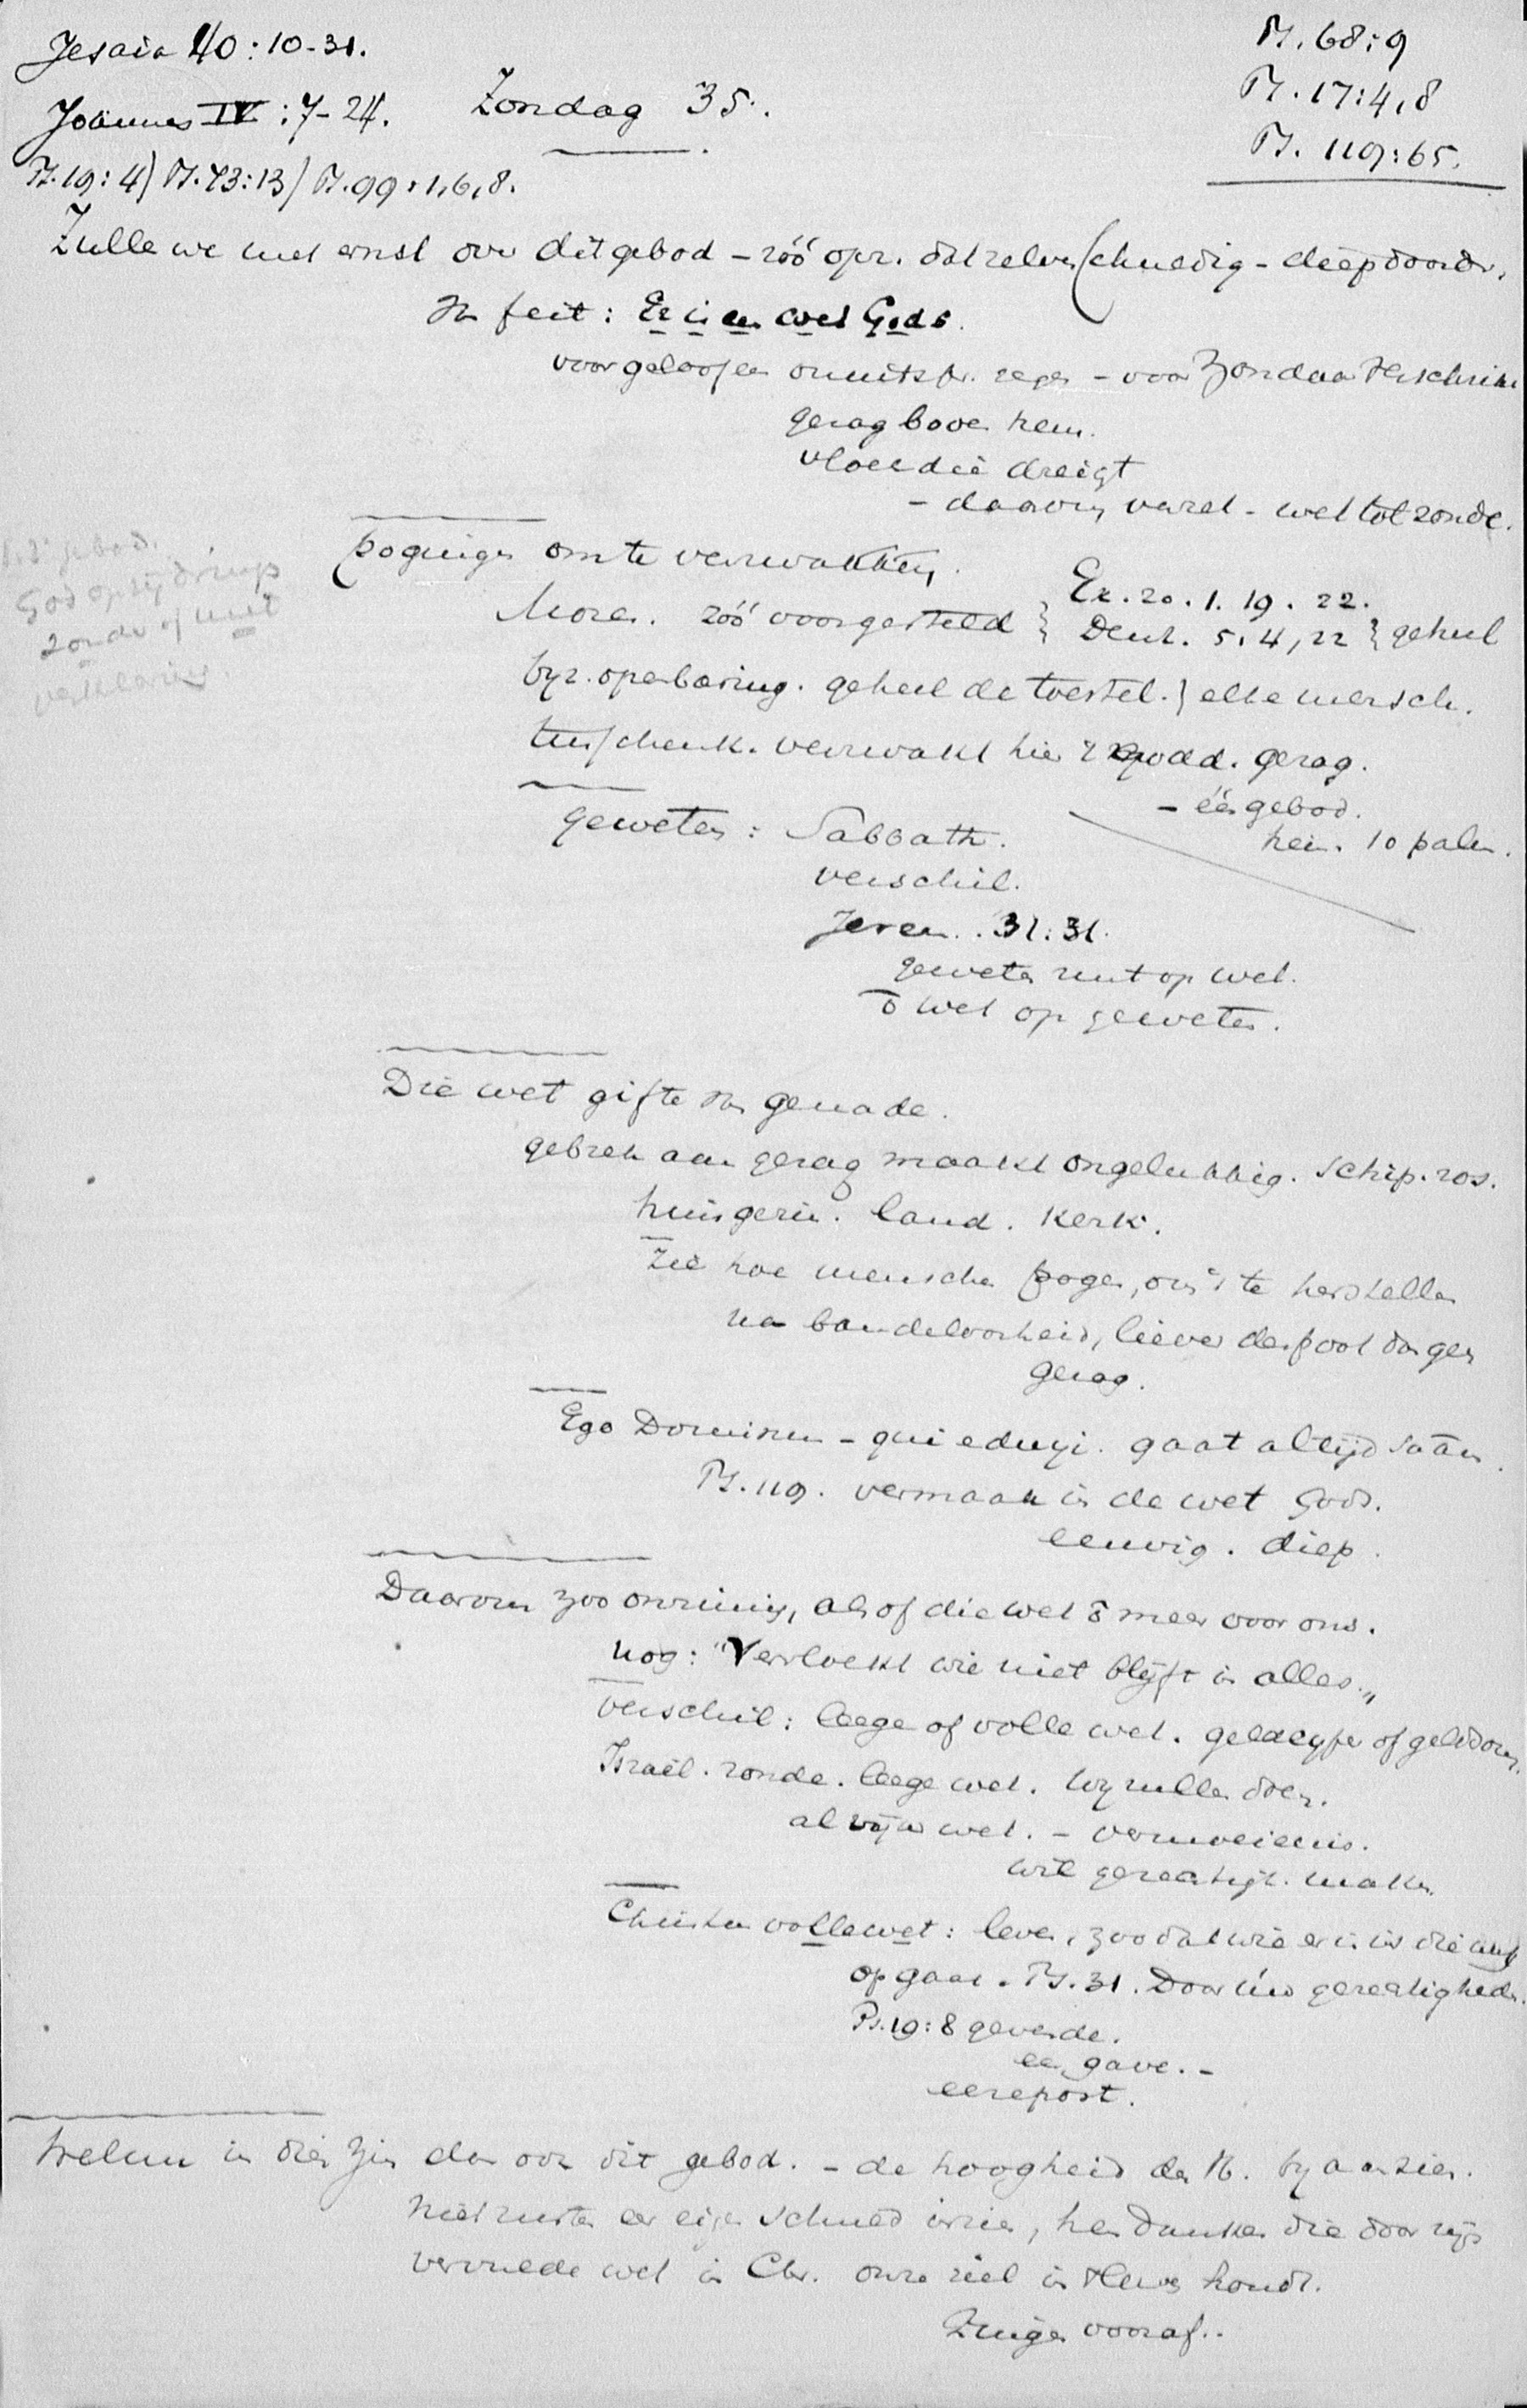 Jesaia 40:10-31.
Ps. 68:9
Joännes IV:7-24. Zondag 35.
Ps. 17:4,8
Ps. 119:65.
Ps. 19:4) Ps. 73:13) Ps. 99:1,6,8.
Zulle we met ernst over dit gebod - zóó opr. dat zelve schuldig - diep doordr.
feit: Er is een wet Gods.
voor geloof een onuitspr. zegen - voor Zondaar verschrikk
gezag boven hem.
vloek die dreigt
- daarom verzet - wet tot zonde.
pogingen om te verzwakken.
gebod.
God op zij dringt
zonde of met
verklaring.
Mozes. zóó voorgesteld } Ex. 20. 1. 19. 22.
Deut. 5. 4, 22 } geheel
byz. openbaring. geheel de toestel. } elke mensch.
tusschenk. verzwakt hier 't godd. gezag.
- één gebod.
geweten: Sabbath. hei. 10 palen.
verschil.
Jerem. 31:31.
geweten rust op wet.
ō wet op geweten.
Die wet gifte van genade.
gebrek aan gezag maakt ongelukkig. Schip. ros.
huisgezin. land. Kerk.
Zie hoe menschen pogen, om 't te herstellen
na bandeloosheid, liever despoot dan geen
gezag.
Ego Dominus - qui eduxi. gaat altijd saâm.
Ps. 119. vermaak in de wet Gods.
eeuwig. diep.
Daarom zoo onzinnig, alsof die wet ō meer voor ons.
nog: "Vervloekt wie niet blijft in alles."
verschil: leege of volle wet. geldcyfer of geldsom.
Israël. zonde. leege wet. Wy zullen doen.
al wet. - vermoeienis.
wil gerechtigh. maken.
Christen volle wet: leven, zoodat wie er in is die
opgaat. Ps. 31. Door úw gerechtigheid.
Ps. 19:8 gevende.
een gave. -
eerepost.
Welnu in dien zin dan ook dit gebod. - de hoogheid der W. by aanzien.
Niet rusten eer eigen schuld inzien, hem danken die door zijn
vervulde wet in Chr. onze ziel in leven houdt.
Zingen vooraf..